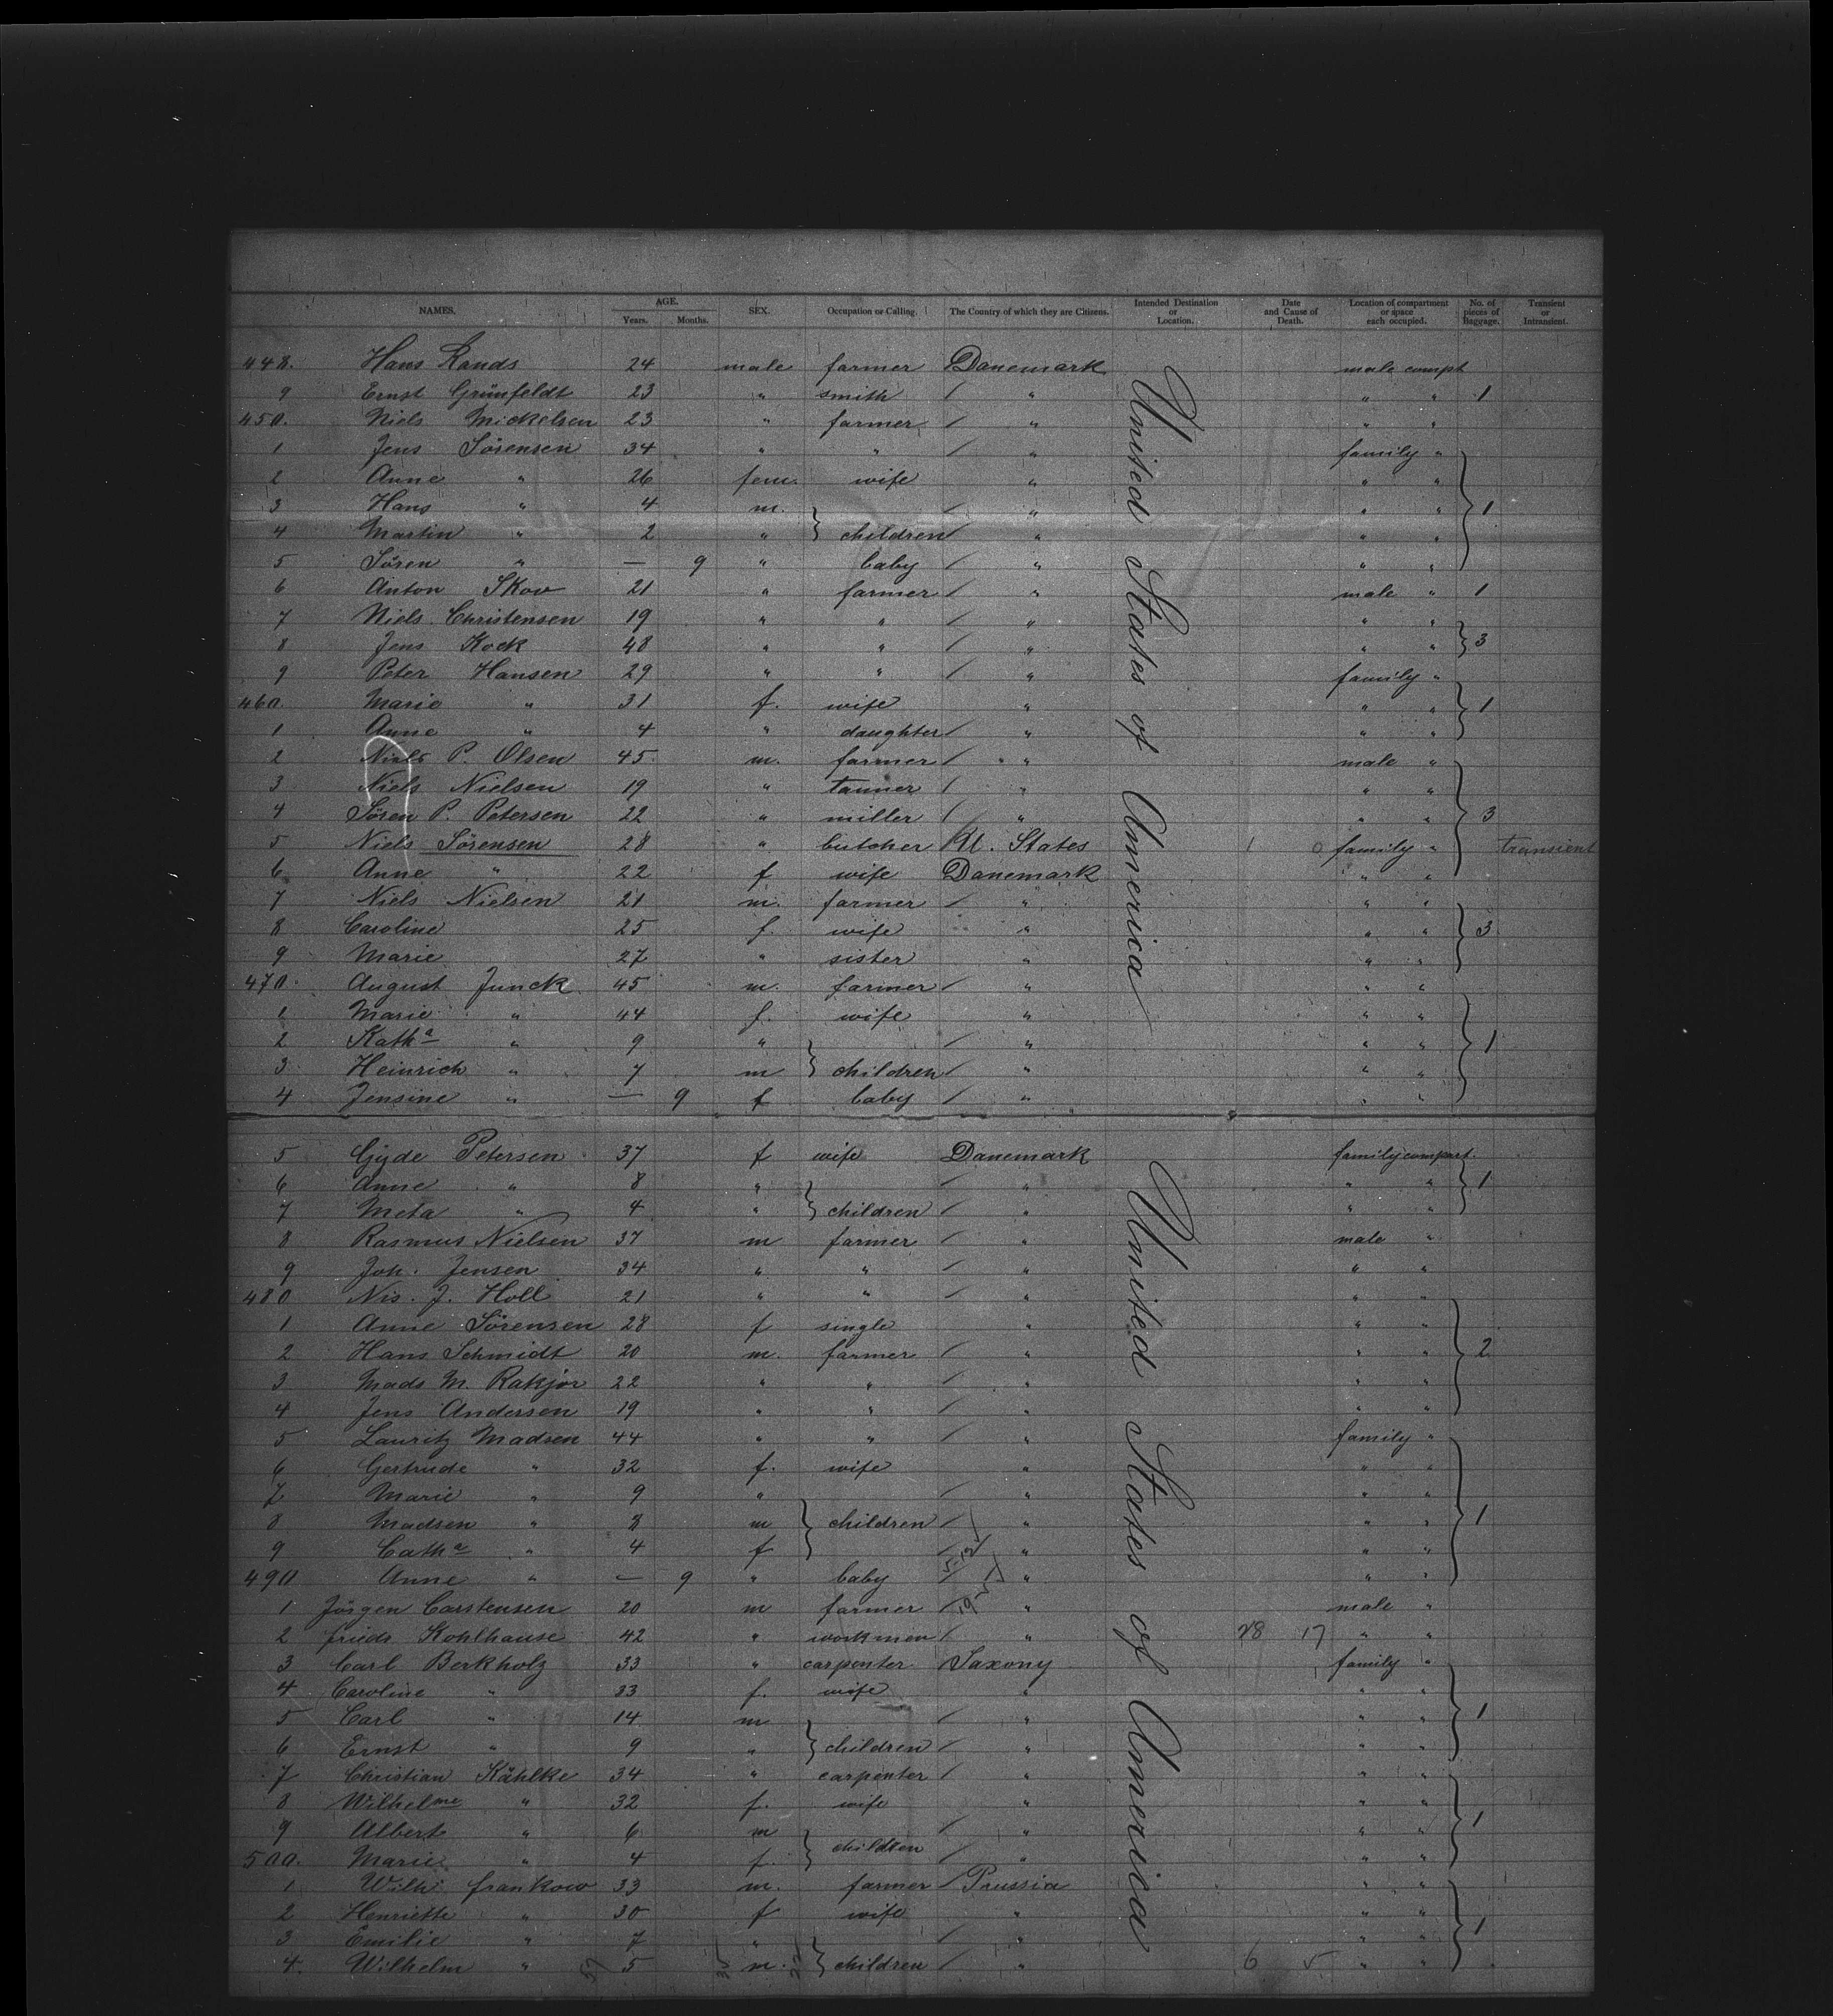 NAMES. AGE. Years. Months. SEX. Occupation or Calling. The Country of which they are Citizens. Intended Destination or Location. Date and Cause of Death. Location of compartment or space each occupied. No. of pieces of Baggage. Transient or Intransient.
448. Hans Rands 24 male farmer Danemark male compt
9 Ernst Grünfeldt 23 " smith " " " 1
450. Niels Mickelsen 23 " farmer " " "
1 Jens Sörensen 34 " " " family "
2 Anne " 26 fem. wife " " "
3 Hans " 4 m. " " " 1
4 Martin " 2 " children " " "
5 Sören " — 9 " baby " " "
6 Anton Skov 21 " farmer " male " 1
7 Niels Christensen 19 " " " " "
8 Jens Kock 48 " " " " " 3
9 Peter Hansen 29 " " " family "
460. Marie " 31 f. wife " " " 1
1 Anne " 4 " daughter " " "
2 Niels P. Olsen 45 m. farmer " male "
3 Niels Nielsen 19 " tanner " " "
4 Sören P. Petersen 22 " miller " " " 3
5 Niels Sörensen 28 " butcher U. States 1 0 family " transient
6 Anne " 22 f wife Danemark " "
7 Niels Nielsen 21 m. farmer " " "
8 Caroline 25 f. wife " " " 3
9 Marie 27 " sister " " "
470. August Junck 45 m. farmer " " "
1 Marie " 44 f. wife " " "
2 Katha " 9 " " " " 1
3 Heinrich " 7 m children " " "
4 Jensine " — 9 f baby " " "
United States of America
5 Gyde Petersen 37 f wife Danemark family compart.
6 Anne " 8 " " " " 1
7 Meta " 4 " children " " "
8 Rasmus Nielsen 37 m farmer " male "
9 Joh. Jensen 34 " " " " "
480 Nis. J. Holl 21 " " " " "
1 Anne Sörensen 28 f single " " "
2 Hans Schmidt 20 m. farmer " " " 2
3 Mads M. Rakjor 22 " " " " "
4 Jens Andersen 19 " " " " "
5 Lauritz Madsen 44 " " " family "
6 Gertrude " 32 f. wife " " "
7 Marie " 9 " " " "
8 Madsen " 8 m children " " " 1
9 Catha " 4 f " " "
490 Anne " — 9 " baby " " "
1 Jürgen Carstensen 20 m farmer " male "
2 Frieds Kohlhause 42 " workman " 28 17 " "
3 Carl Berkholz 33 " carpenter Saxony family "
4 Caroline " 33 f. wife " " "
5 Carl " 14 m " " " 1
6 Ernst " 9 " children " " "
7 Christian Kählke 34 " carpenter " " "
8 Wilhelme " 32 f. wife " " "
9 Albert " 6 m " " " 1
500. Marie " 4 f. children " " "
1 Wilh. Frankow 33 m. farmer Prussia " "
2 Henriette " 30 f wife " " "
3 Emilie " 7 " " " " 1
4. Wilhelm " 5 m. children " 6 5 " "
United States of America